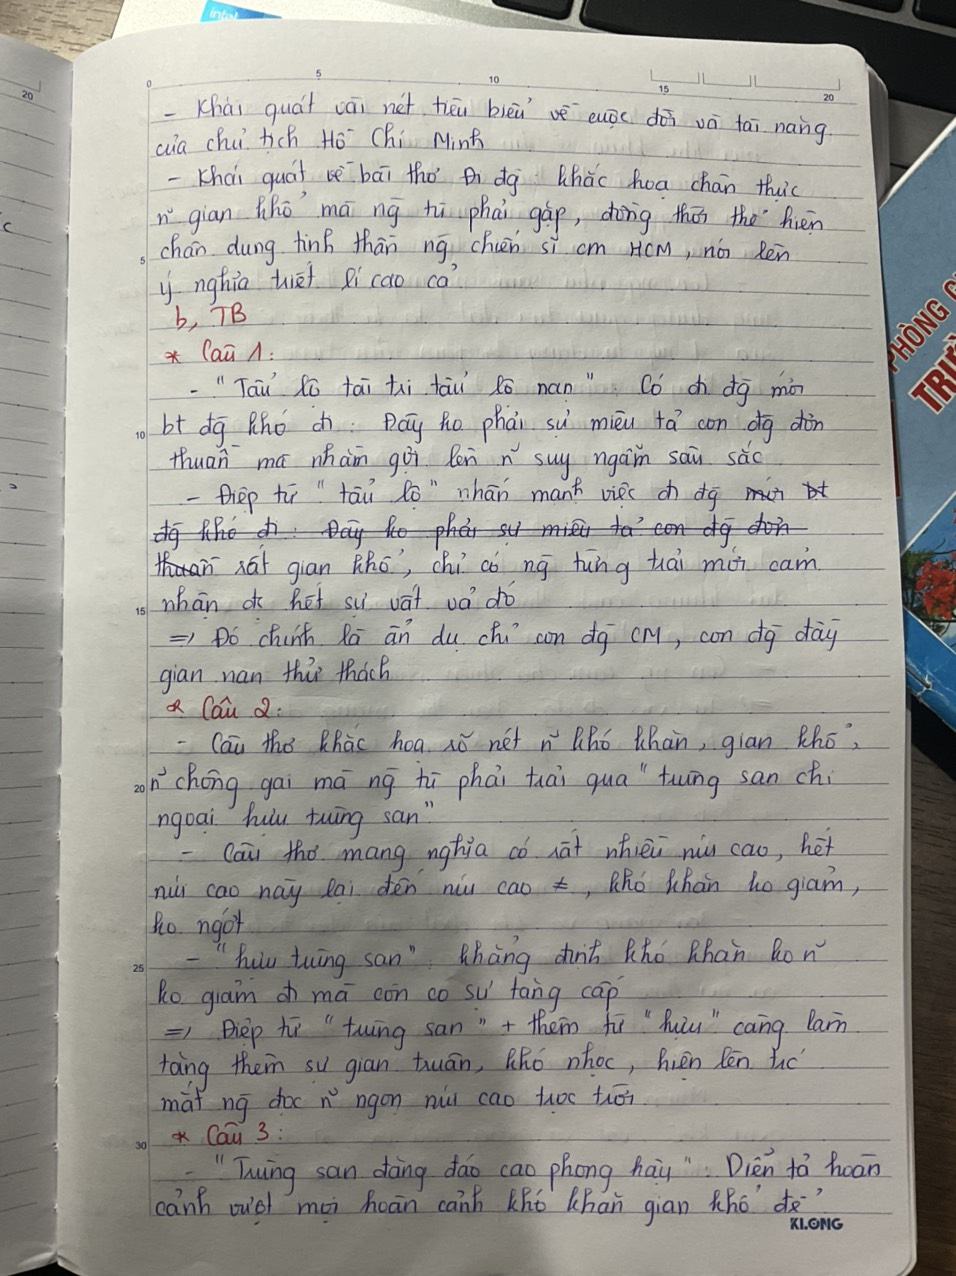 intel
0 5 10 15 20
20
- Khái quát vài nét tiêu biểu về cuộc đời và tài năng
của chủ tịch Hồ Chí Minh
- Khái quát về bài thơ Đi đg: khắc hoạ chân thực
n~ gian khổ mà ng tù phải gặp, đồng thời thể hiện
5 chân dung tinh thần ng chiến sĩ cm HCM, nói lên
ý nghĩa triết lí cao cả
b, TB
* Câu 1:
- "Tẩu lộ tài tri tẩu lộ nan": Có đi đg mới
10 bt đg khó đi: Đây ko phải sự miêu tả con đg đơn
thuần mà nhằm gửi lên n~ suy ngẫm sâu sắc
- Điệp từ "tẩu lộ" nhấn mạnh việc đi đg mới bt
đg khó đi: Đây ko phải sự miêu tả con đg đơn
thuần rất gian khổ, chỉ có ng từng trải mới cảm
15 nhận đc hết sự vất vả đó
=> Đó chính là ẩn dụ chỉ con đg CM, con đg đầy
gian nan thử thách
* Câu 2:
- Câu thơ khắc hoạ rõ nét n~ khó khăn, gian khổ,
20 n~ chông gai mà ng tù phải trải qua "trùng san chi
ngoại hựu trùng san"
- Câu thơ mang nghĩa có rất nhiều núi cao, hết
núi cao này lại đến núi cao ≠, khó khăn ko giảm,
ko ngớt
25 - "hựu trùng san": khẳng định khó khăn ko n~
ko giảm đi mà còn có sự tăng cấp
=> Điệp từ "trùng san" + thêm từ "hựu" càng làm
tăng thêm sự gian truân, khó nhọc, hiện lên trc
mắt ng đọc n~ ngọn núi cao trọc trời
30 * Câu 3:
- "Trùng san đăng đáo cao phong hậy": Diễn tả hoàn
cảnh vượt mọi hoàn cảnh khó khăn gian khổ để
KLONG
PHÒNG
TRIỂ